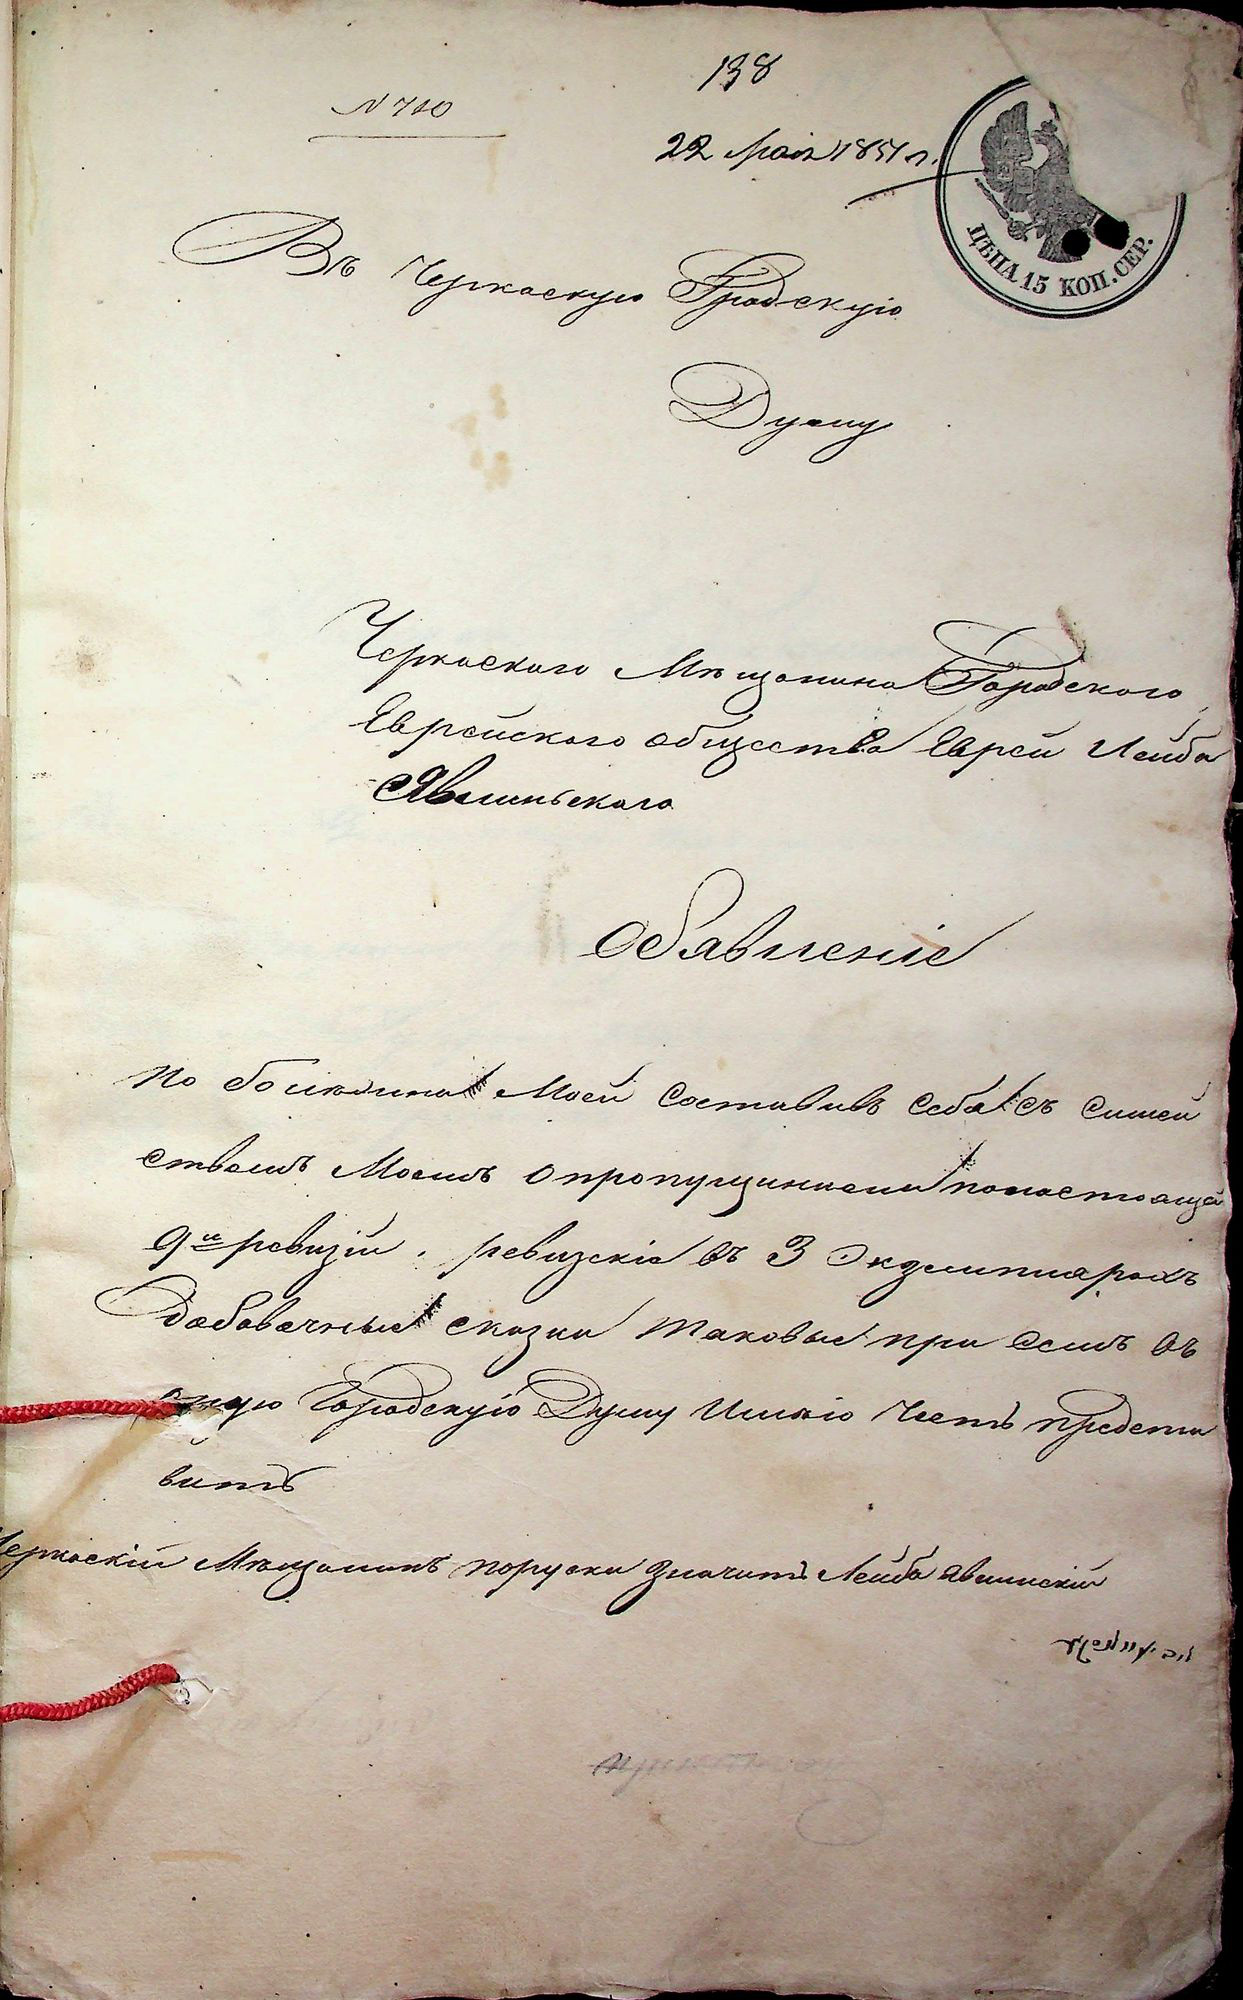 138
N 710
22 Мая 1851 г.
ЦѢНА 15 КОП. СЕР.
Въ Черкаскую Градскую
Думу
Черкаского Мѣщанина Городского
Еврейского общества Еврей Лейба
Явлиньского
Обявленіе
по Моей Составивъ Себя съ Симей
ствомъ Моимъ о пропущиними понастояще
9й ревизіи. ревизскіе въ 3 Экземплярахъ
добавочные сказки таковые при семъ въ
Городскую Думу Имѣю Честь предста
вить
Черкаскій Мѣщанинъ поруски Значить Лейба Явлинскій